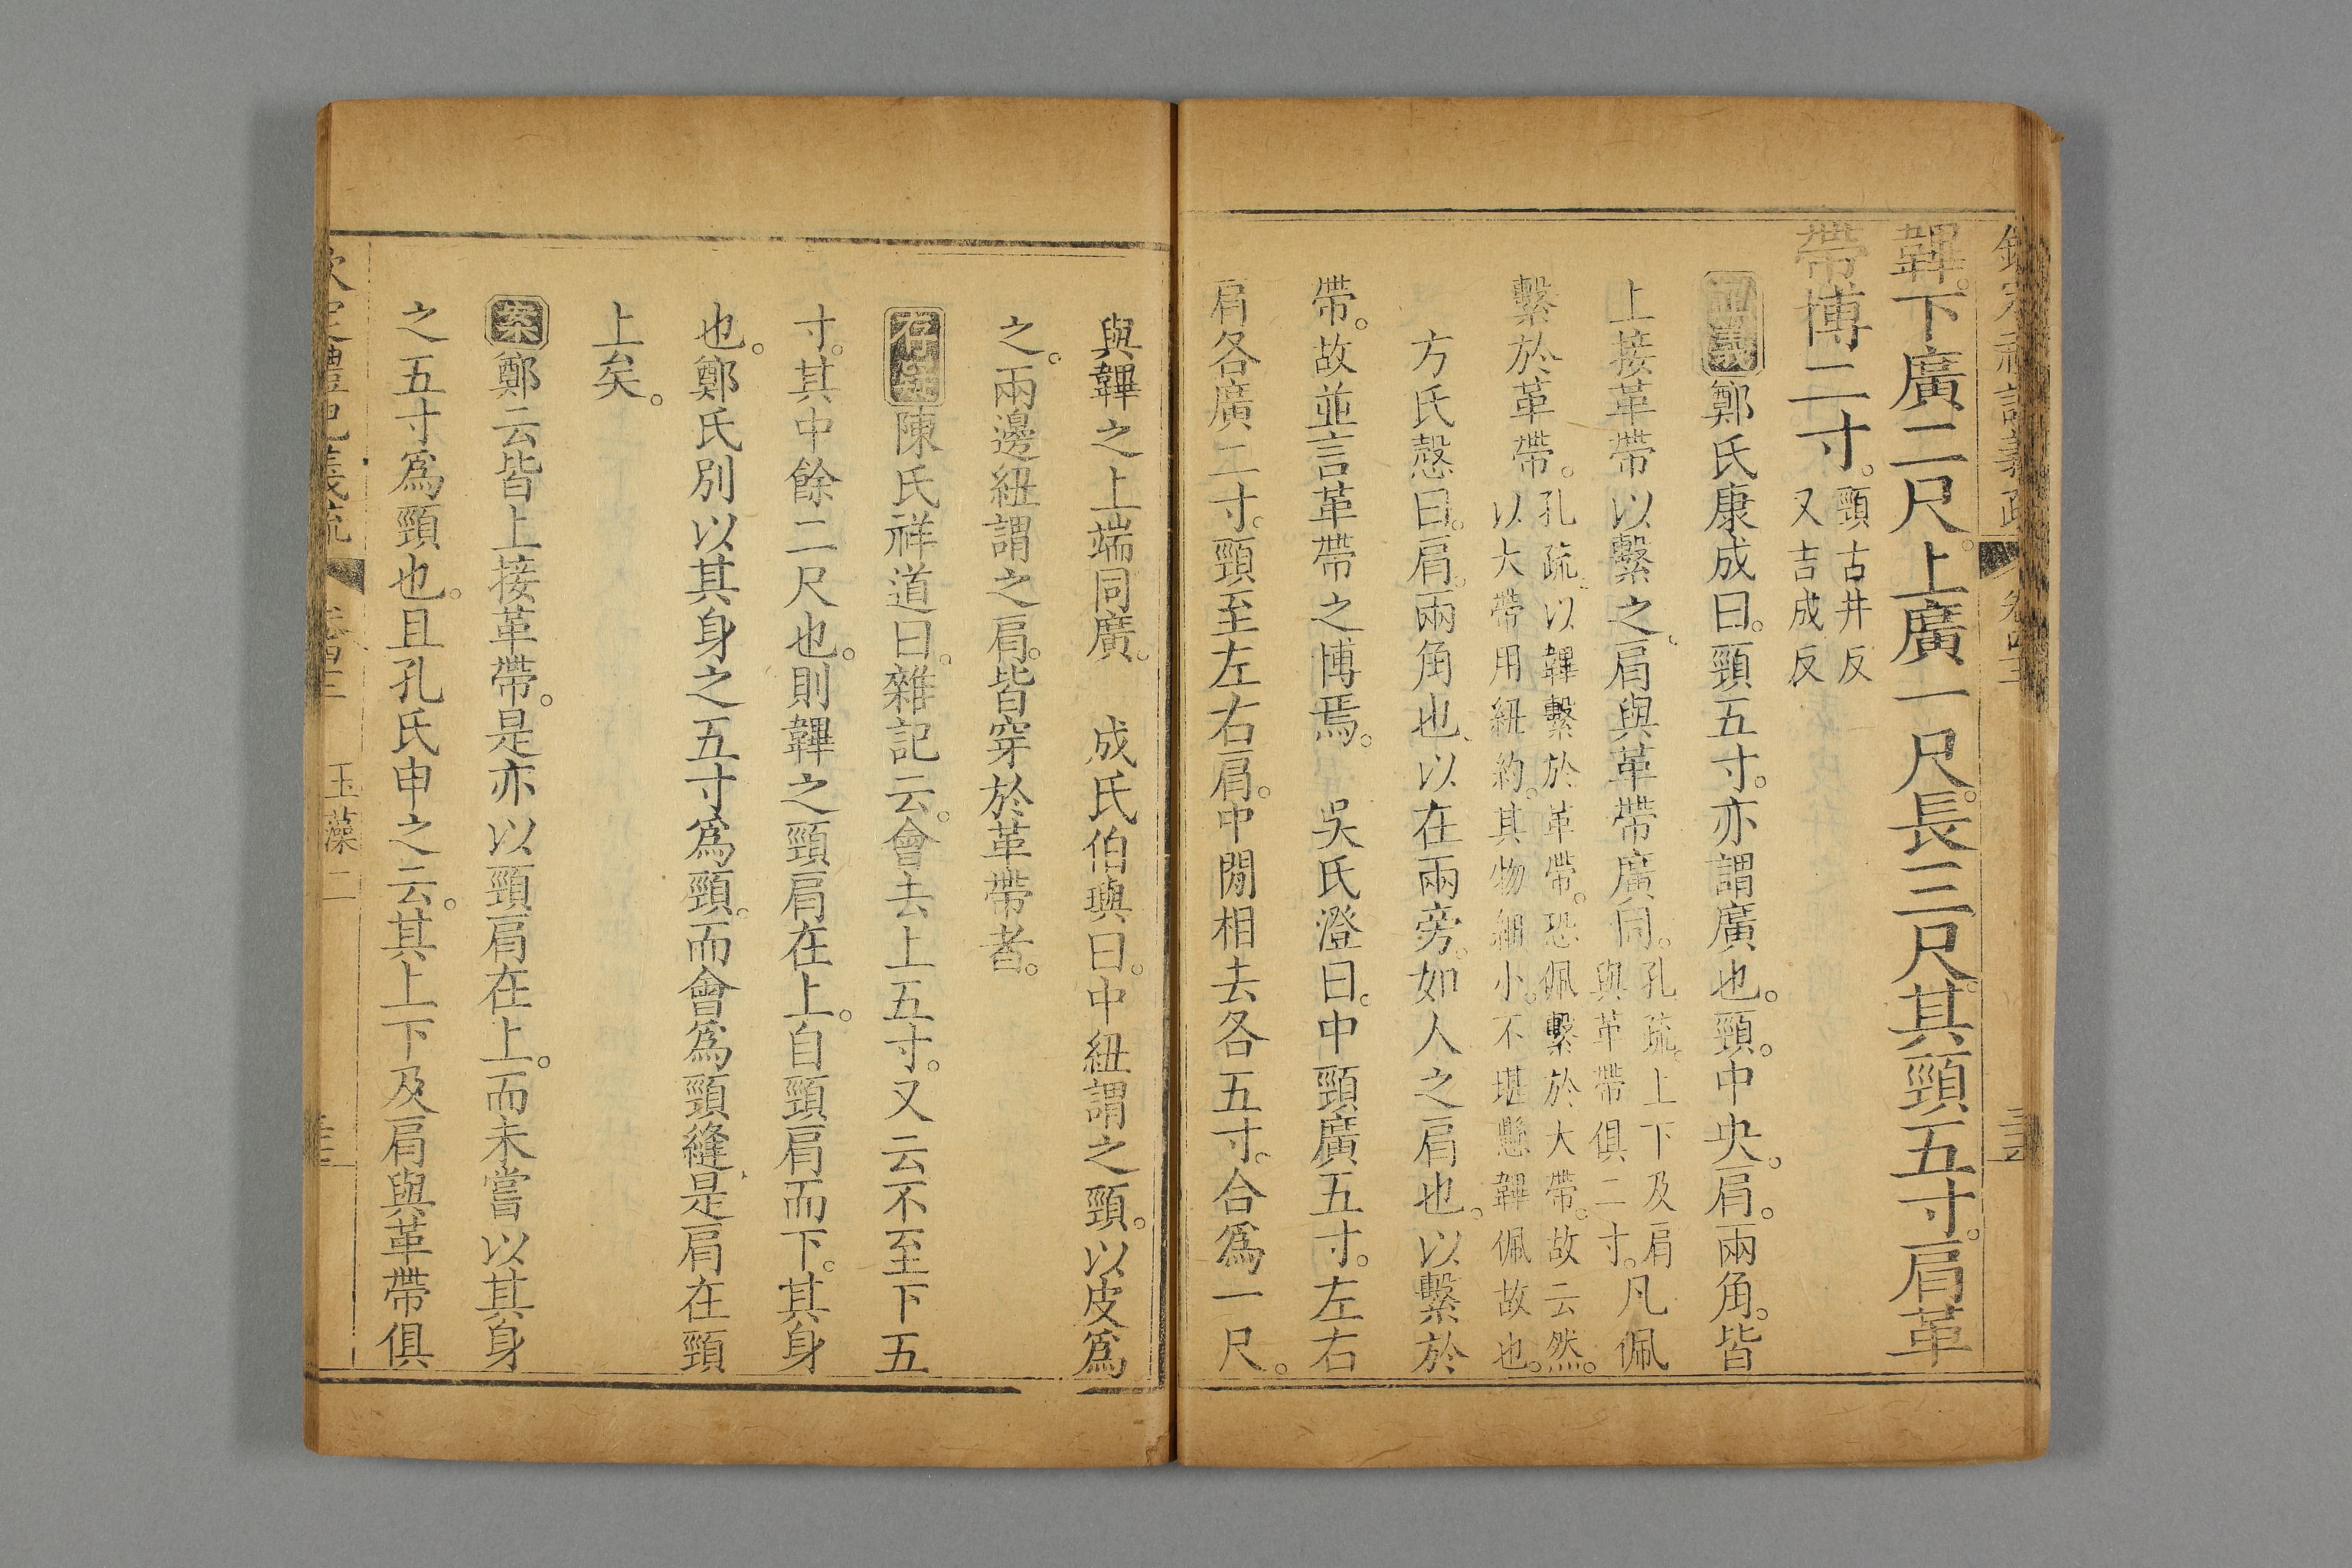 韠。下廣二尺。上廣一尺。長三尺。其頸五寸。肩革
帶博二寸。頸古井反又吉成反
正義鄭氏康成曰。頸五寸。亦謂廣也。頸。中央。肩。兩角。皆
上接革帶以繫之、肩與革帶廣同。孔疏。上下及肩與革帶俱二寸。凡佩
繫於革帶。孔疏。以韠繫於革帶。恐佩繫於大帶。故云然。以大帶用紐約。其物細小。不堪懸韠佩故也。
方氏慤曰。肩。兩角也、以在兩旁。如人之肩也。以繫於
帶。故並言革帶之博焉。 吳氏澄曰。中頸廣五寸。左右
肩各廣二寸。頸至左右肩。中閒相去各五寸。合爲一尺。
與韠之上端同廣。 成氏伯璵曰。中紐謂之頸。以皮爲
之。兩邊紐謂之肩。皆穿於革帶者。
存異陳氏祥道曰。雜記云。會去上五寸。又云不至下五
寸。其中餘二尺也。則韠之頸肩在上。自頸肩而下。其身
也。鄭氏別以其身之五寸爲頸。而會爲頸縫、是肩在頸
上矣。
案鄭云皆上接革帶。是亦以頸肩在上。而未嘗以其身
之五寸爲頸也。且孔氏申之云。其上下及肩與革帶俱
欽定禮記義疏 卷四十三 玉藻二